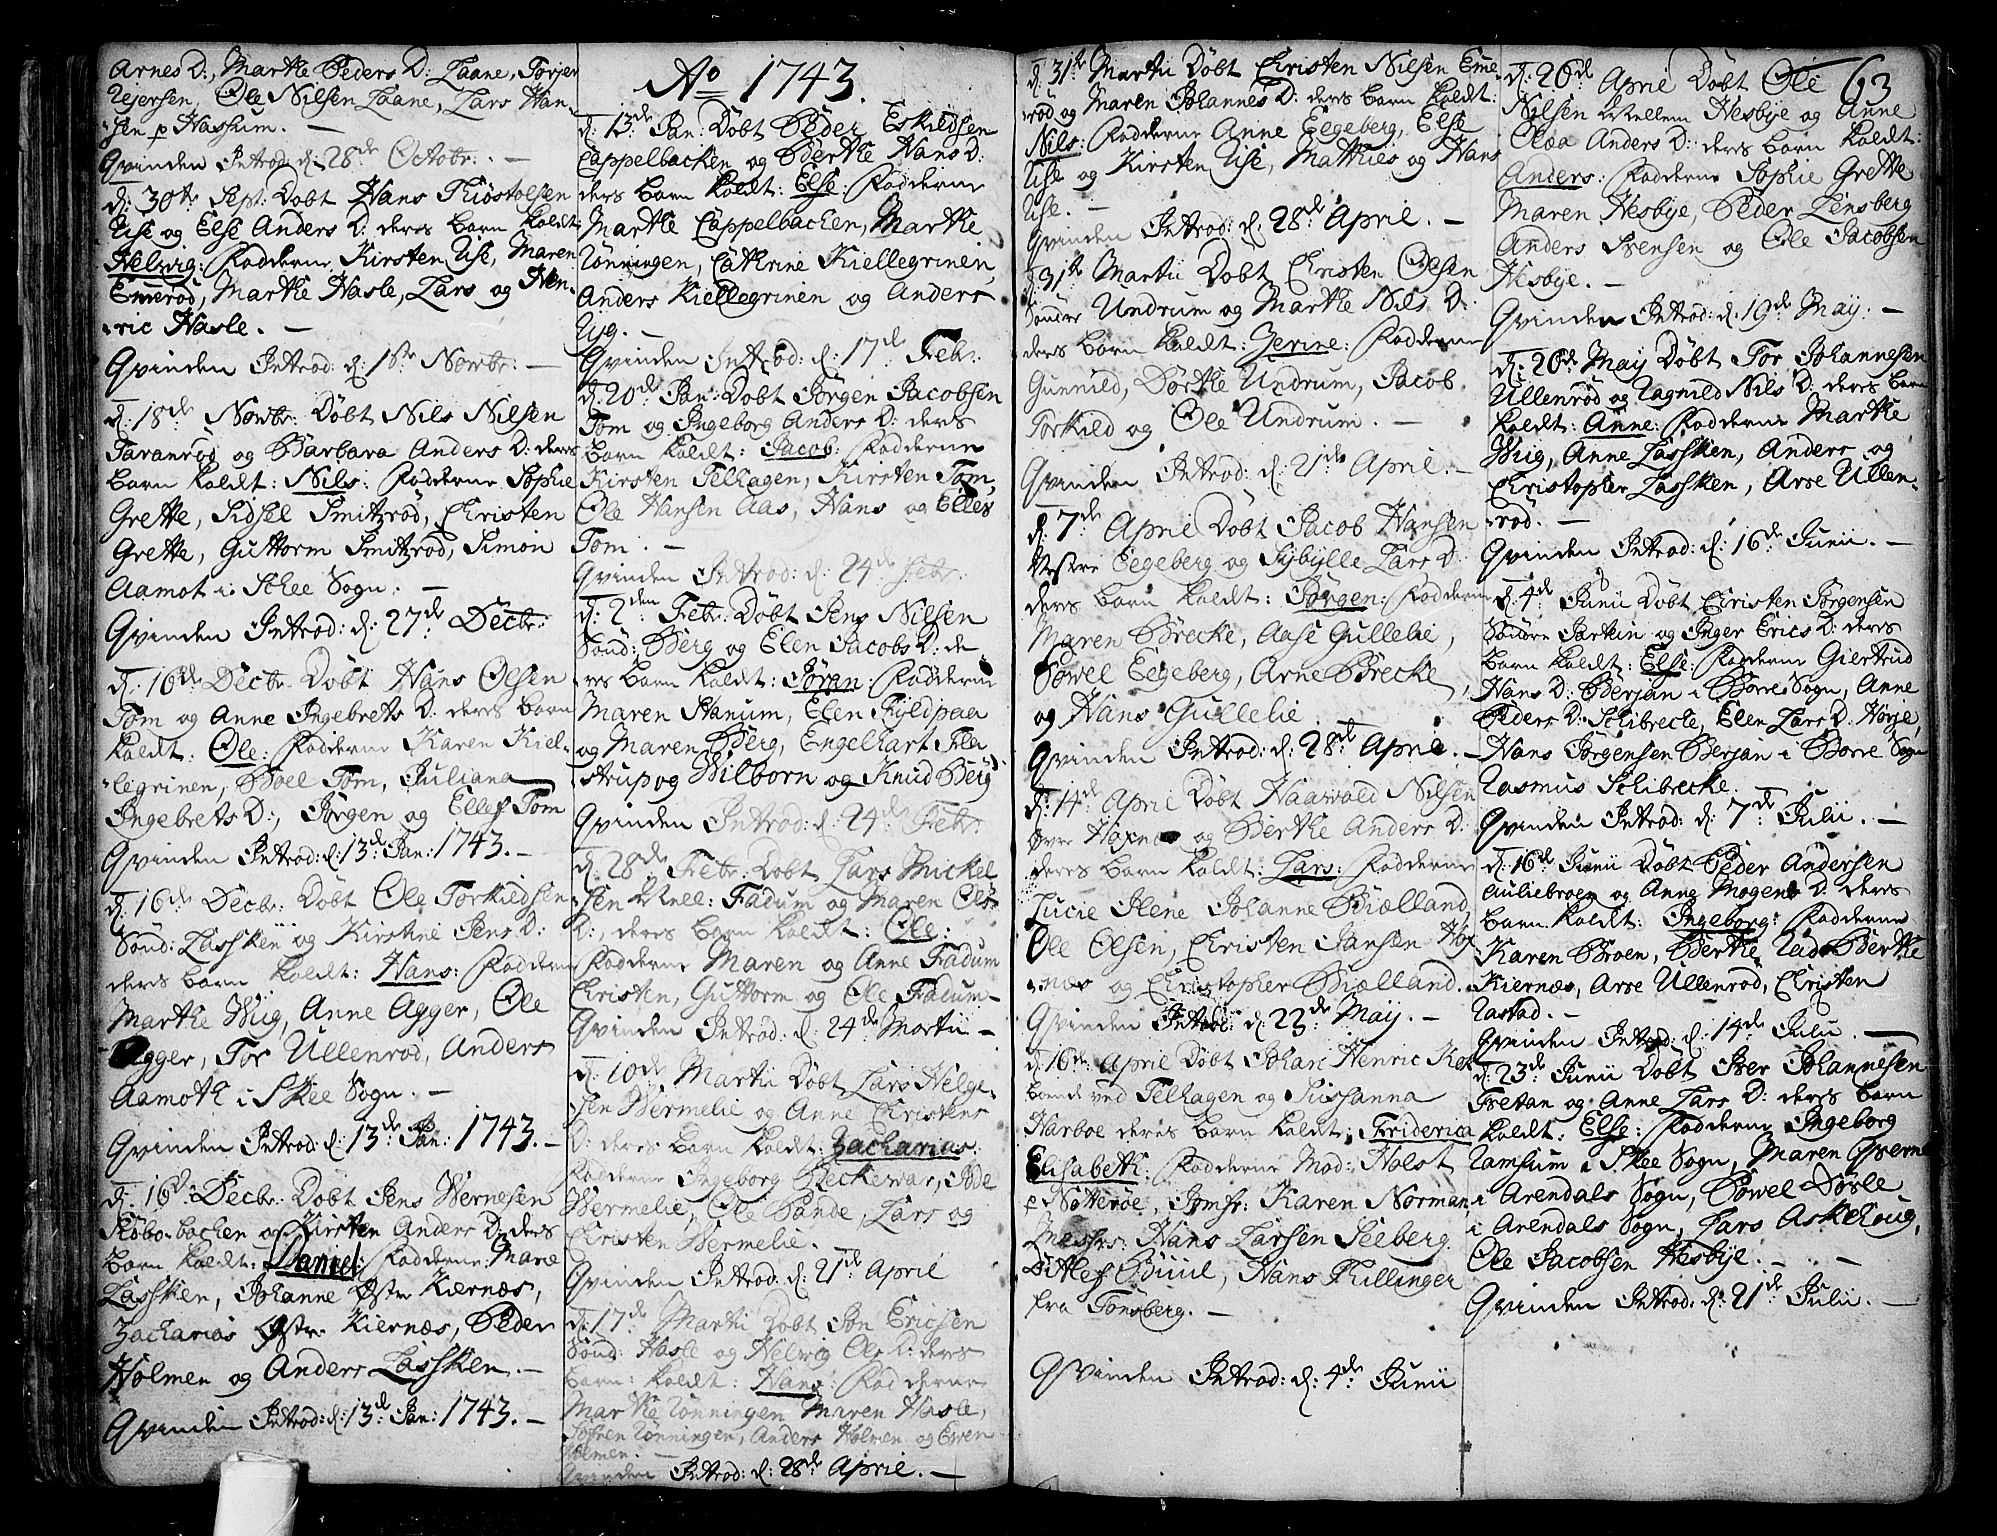 Arnes D:, Marthe Peders D: Laane, Torjer
Rejersen, Ole Nilsen Laane, Lars Han-
sen p Hassum. —
Qvinden Introd: d: 28de Octobr: —
d: 30te Sept: Døbt Hans Thiøstolsen
Ilse og Else Anders D: deres barn kaldt:
Helvig: Fadderne Kirsten Ilse, Maren
Emerød, Marthe Hasle, Lars og Hen-
ric Hasle. —
Qvinden Introd: d: 1ste Novbr: —
d: 18de Novbr: Døbt Nils Nilsen
Taranrød og Barbara Anders D: deres
barn kaldt: Nils: Fadderne Sophie
Grette, Sidsel Smitzrød, Christen
Grette, Guttorm Smitzrød, Simon
Aamot i Schee Sogn. —
Qvinden Introd: d: 27de Decbr:
d: 16de Decbr: Døbt Hans Olsen
Tom og Anne Ingebrets D: deres barn
kaldt: Ole: Fadderne Karen Kiel-
legrinen, Boel Tom, Juliana
Ingebrets D:, Jørgen og Ellef Tom
Qvinden Introd: d: 13de Jan: 1743. —
d: 16de Decbr: Døbt Ole Torkildsen
Sønd: Lassken og Kirstine Jens D:
deres barn kaldt: Hans: Fadderne
Marthe Wiig, Anne Agger, Ole
Agger, Tor Ullenrød, Anders
Aamoth i Skee Sogn. —
Qvinden Introd: d: 13de Jan: 1743. —
d: 16de Decbr: Døbt Jens Wernesen
Skobo-bachen og Kirsten Anders D: deres
barn kaldt: Daniel: Fadderne: Mare
Lassken, Johanne Østre Kiernæs,
Zacharias Østre Kiernæs, Peder
Holmen og Anders Lassken. —
Qvinden Introd: d: 13de Jan: 1743. —
Ao 1743.
d: 13de Jan: Døbt Peder Eskildsen
Cappelbacken og Berthe Hans D:
deres barn kaldt: Else: Fadderne
Marthe Cappelbachen, Marthe
Rønningen, Cathrine Kiellegrinen,
Anders Kiellegrinen og Anders
Uig. —
Qvinden Introd: d: 17de Febr:
d: 20de Jan: Døbt Jørgen Jacobsen
Tom og Ingeborg Anders D: deres
barn kaldt: Jacob: Fadderne
Kirsten Telhagen, Kirsten Tom,
Ole Hansen Aas, Hans og Ellef
Tom. —
Qvinden Introd: d: 24de Febr:
d: 2den Febr: Døbt Jens Nilsen
Sønd: Berg og Elen Jacobs D: de-
res barn kaldt: Jøran: Fadderne
Maren Stanum, Elen Fyldpaa
og Maren Berg, Engelhart Fla
strup og Wilborn og Knud Berg
Qvinden Introd: d: 24de Febr:
d: 28de Febr: Døbt Lars Mickel
sen Mell: Fadum og Maren Ols
D:, deres barn kaldt: Ole:
Fadderne Maren og Anne Fadum
Christen, Guttorm og Ole Fadum —
Qvinden Introd: d: 24de Martii —
d: 10de Martii Døbt Lars Helge-
sen Wermelie og Anne Christens
D: deres barn kaldt: Zacharias:
Fadderne Ingeborg Beckewar, Ade
Wermelie, Ole Sande, Lars og
Christen Wermelie.
Qvinden Introd: d: 21de April
d: 17de Marti Døbt Jon Ericsen
Sønd: Hasle og Helvig Ols D: deres
barn: kaldt: Hans: Fadderne
Marthe Rønningen Maren Hasle,
Søfren Rønningen, Anders Holmen og Even
Holmen. —
Qvinden Introd: d: 28de April. —
d: 31te Martii Døbt Christen Nilsen Eme-
rød og Maren Johannes D: deres barn kaldt:
Nils: Fadderne Anne Eegeberg, Else
Ilse og Kirsten Ilse, Mathies og Hans
Ilse. —
Qvinden Introd: d: 28de April. —
d: 31te Martii Døbt Christen Olsen
Søndre Undrum og Marthe Nils D:
deres barn kaldt: Jerine: Fadderne
Gunnild, Dorthe Undrum, Jacob
Torkild og Ole Undrum. —
Qvinden Introd: d: 21de April. —
d: 7de April Døbt Jacob Hansen
Vestre Eegeberg og Sybylle Lars D:
deres barn kaldt: Jørgen: Fadderne
Maren Brecke, Aase Gullelie,
Powel Eegeberg, Arne Brecke,
og Hans Gullelie.
Qvinden Introd: d: 28de April. —
d: 14de April Døbt Haavald Nilsen
Over Hexnes og Berthe Anders D:
deres barn kaldt: Lars: Fadderne
Lucie Ilene Johanne Biælland,
Ole Olsen, Christen Jansen Hex
næs og Christopher Biælland.
Qvinden Introd: d: 23de Maij. —
d: 16de April Døbt Johan Henric Kok
boende ved Telhagen og Susanna
Harboe deres barn kaldt: Friderica
Elisabeth: Fadderne Mad: Holst
p Nøtterøe, Jomfr: Karen Norman
Messrs: Hans Larsen Seeberg
Ditlef Bduul, Hans Thillinger
fra Tønsberg. —
Qvinden Introd: d: 4de Junii
63
d: 26de April Døbt Ole
Nilsen Mellem Hesbye og Anne
Olæa Anders D: deres barn kaldt:
Anders: Fadderne Sophie Grette
Maren Hesbye, Peder Lensberg
Anders Svensen og Ole Jacobsen
Hesbye. —
Qvinden Introd: d: 19de May. —
d: 26de May Døbt Tor Johannesen
Ullenrød og Ragnild Nils D: deres barn
kaldt: Anne: Fadderne Marthe
Wiig, Anne Lassken, Anders og
Christopher Lassken, Arse Ullen-
rød. —
Qvinden Introd: d: 16de Junii. —
d: 4de Junii Døbt Christen Jørgensen
Søndre Sarkin og Inger Erics D: deres
barn kaldt: Else: Fadderne Giertrud
Hans D: Berjan i Borre Sogn, Anne
Peders D: Schibrecke, Elen Lars D: Horje,
Hans Jørgensen Berjan i Borre Sogn
Rasmus Schibrecke.
Qvinden Introd: d: 7de Julii. —
d: 16de Junii Døbt Peder Andersen
Auliebroen og Anne Mogens D: deres
barn kaldt: Ingeborg: Fadderne
Karen Broen, Berthe Reid, Berthe
Kiernæs, Arse Ullenrød, Christen
Rastad. —
Qvinden Introd: d: 14de Julii. —
d: 23de Junii Døbt Iver Johannesen
Fretan og Anne Lars D: deres barn
kaldt: Else: Fadderne Ingeborg
Ramsum i Skee Sogn, Maren Qverne
i Arendals Sogn, Powel Døsle
i Arendals Sogn, Lars Askehoug,
Ole Jacobsen Hesbye. —
Qvinden Introd: d: 21de Julii. —